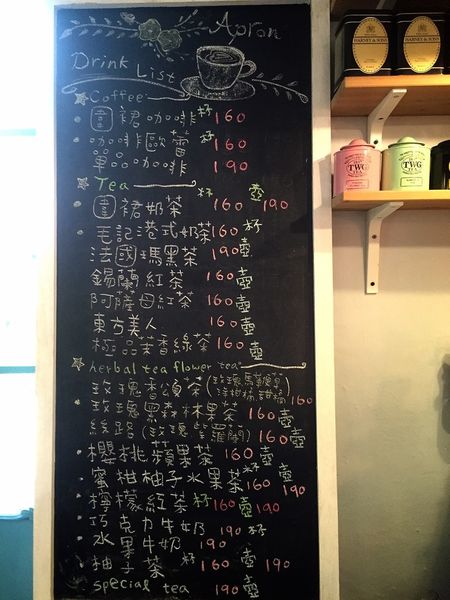 Apron
Drink List
Coffee
圍裙咖啡 杯 160
咖啡歐蕾 杯 160
單品咖啡 190
Tea
圍裙奶茶 杯 160 壺 190
毛記港式奶茶 160 杯
法國瑪黑茶 190 壺
錫蘭紅茶 160 壺
阿薩母紅茶 160 壺
東方美人 160 壺
極品茉香綠茶 160 壺
herbal tea flower tea
玫瑰香頌茶 160
玫瑰黑森林果茶 160 壺
絲路(玫瑰紫羅蘭) 160 壺
櫻桃蘋果茶 160 壺
蜜柑柚子水果茶 杯 160 壺 190
檸檬紅茶 杯 160 壺 190
巧克力牛奶 190 杯
水果牛奶 190
柚子茶 160 壺 190
special tea 190 壺
HARNEY & SONS
HARNEY & SONS
TWG
TEA
TWG
TEA